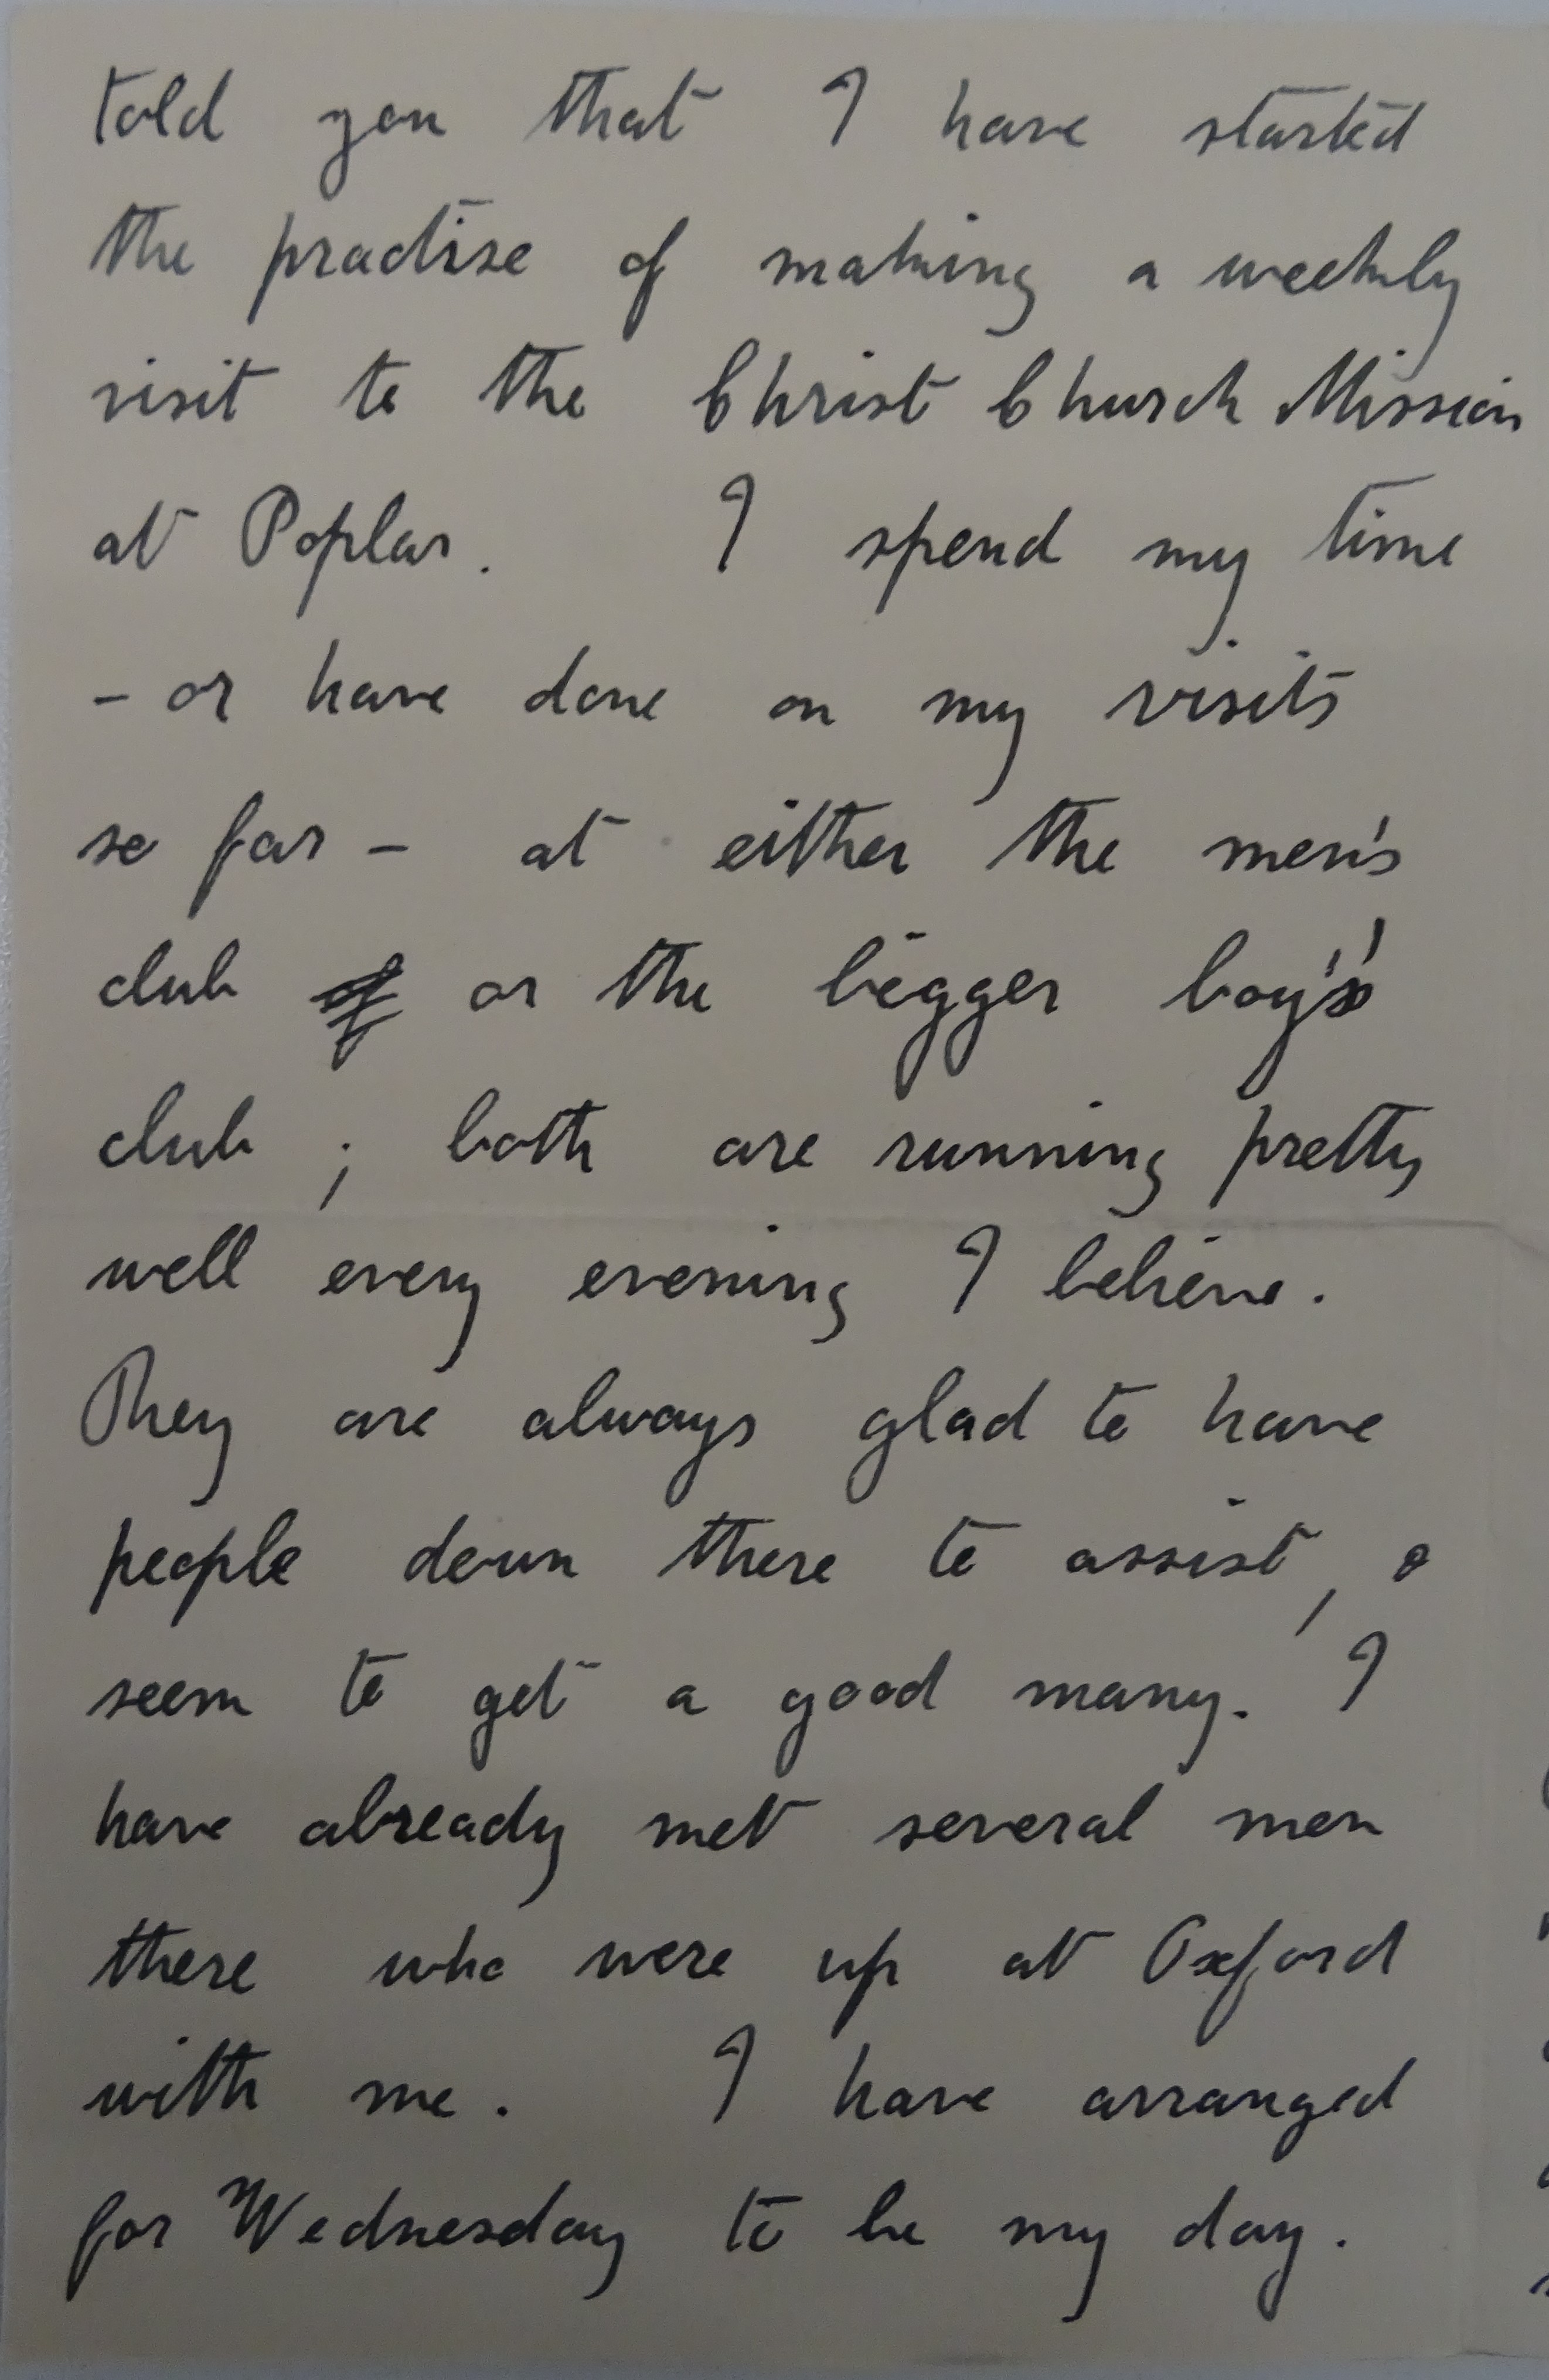 told you that I have started
the practise of making a weekly
visit to the Christ Church Mission
at Poplar. I spend my time
- or have done on my visits
so far - at either the men's
club or the bigger boys'
club ; both are running pretty
well every evening I believe.
They are always glad to have
people down there to assist, &
seem to get a good many. I
have already met several men
there who were up at Oxford
with me. I have arranged
for Wednesday to be my day.